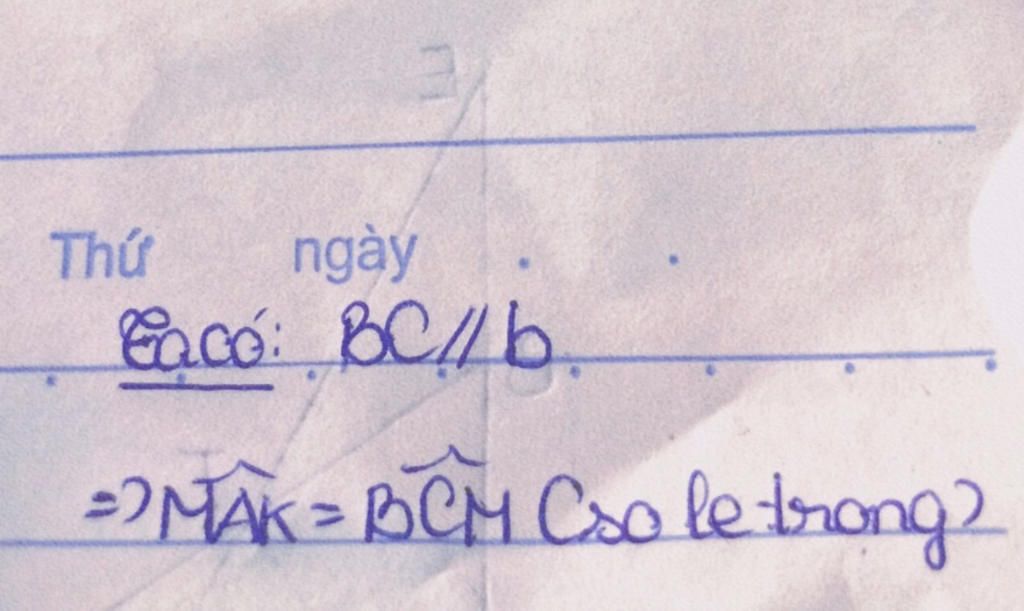 Thứ ngày
Ta có: BC // b
=> \widehat{MAK} = \widehat{BCM} (so le trong)